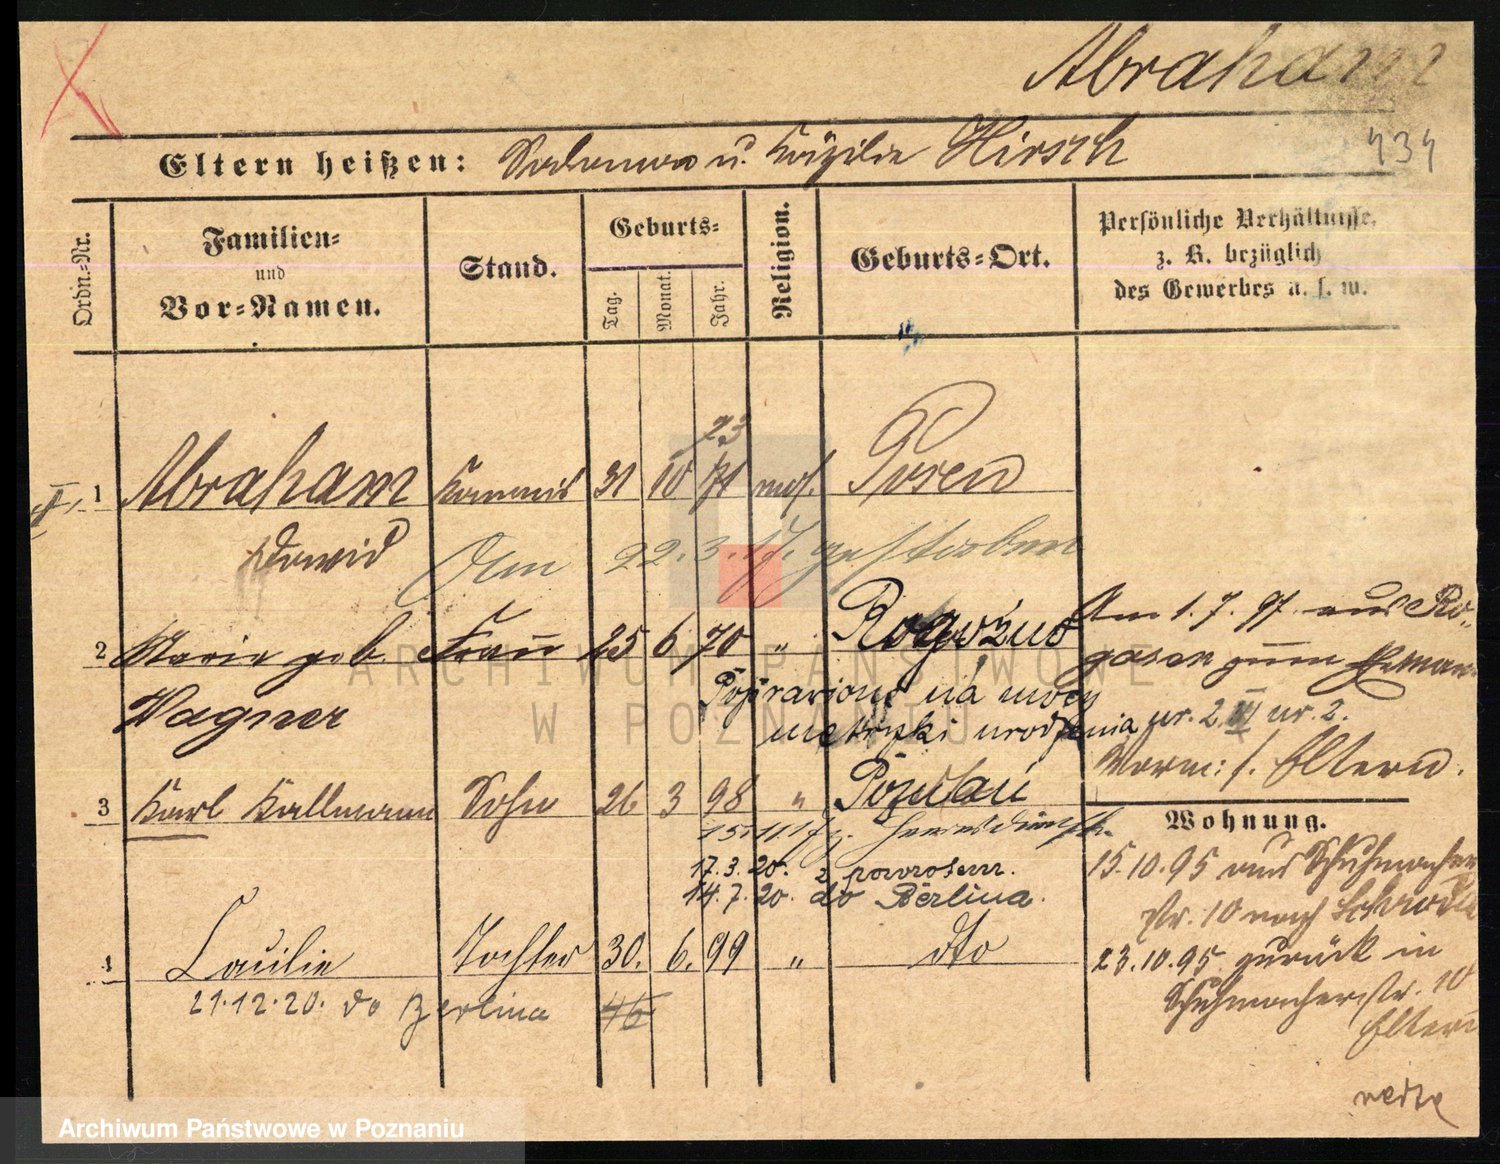 Abraham
Eltern heißen: Salomon u. Cäzilie Hirsch
434
Ordn.-Nr.
Familien-
und
Vor-Namen.
Stand.
Geburts-
Tag.
Monat.
Jahr.
Religion.
Geburts-Ort.
Persönliche Verhältnisse,
z. B. bezüglich
des Gewerbes u. s. w.
73
1 Abraham Kommis 31 10 71 mos. Posen
David
Am 22.3.17. gestorben
2 Marie geb. Frau 25 6 70 " Rogoźno
Wagner
Am 1.7.97 aus Ro-
gasen zum
Poprawiono na mocy
metryki urodzenia
nr. 2 VI nr. 2.
Vorm: s. Eltern.
3 Karl Kallmann Sohn 26 3 98 " Poznań
15.11.17. Heeresdienst.
17.3.20. z powrotem.
14.7.20. do Berlina.
Wohnung.
15.10.95 aus Schuhmacher
str. 10 nach
23.10.95 zurück in
Schuhmacherstr. 10
Eltern
4 Tochter 30. 6. 99 " dto
21.12.20. do Berlina
verte
ARCHIWUM PAŃSTWOWE
W POZNANIU
Archiwum Państwowe w Poznaniu